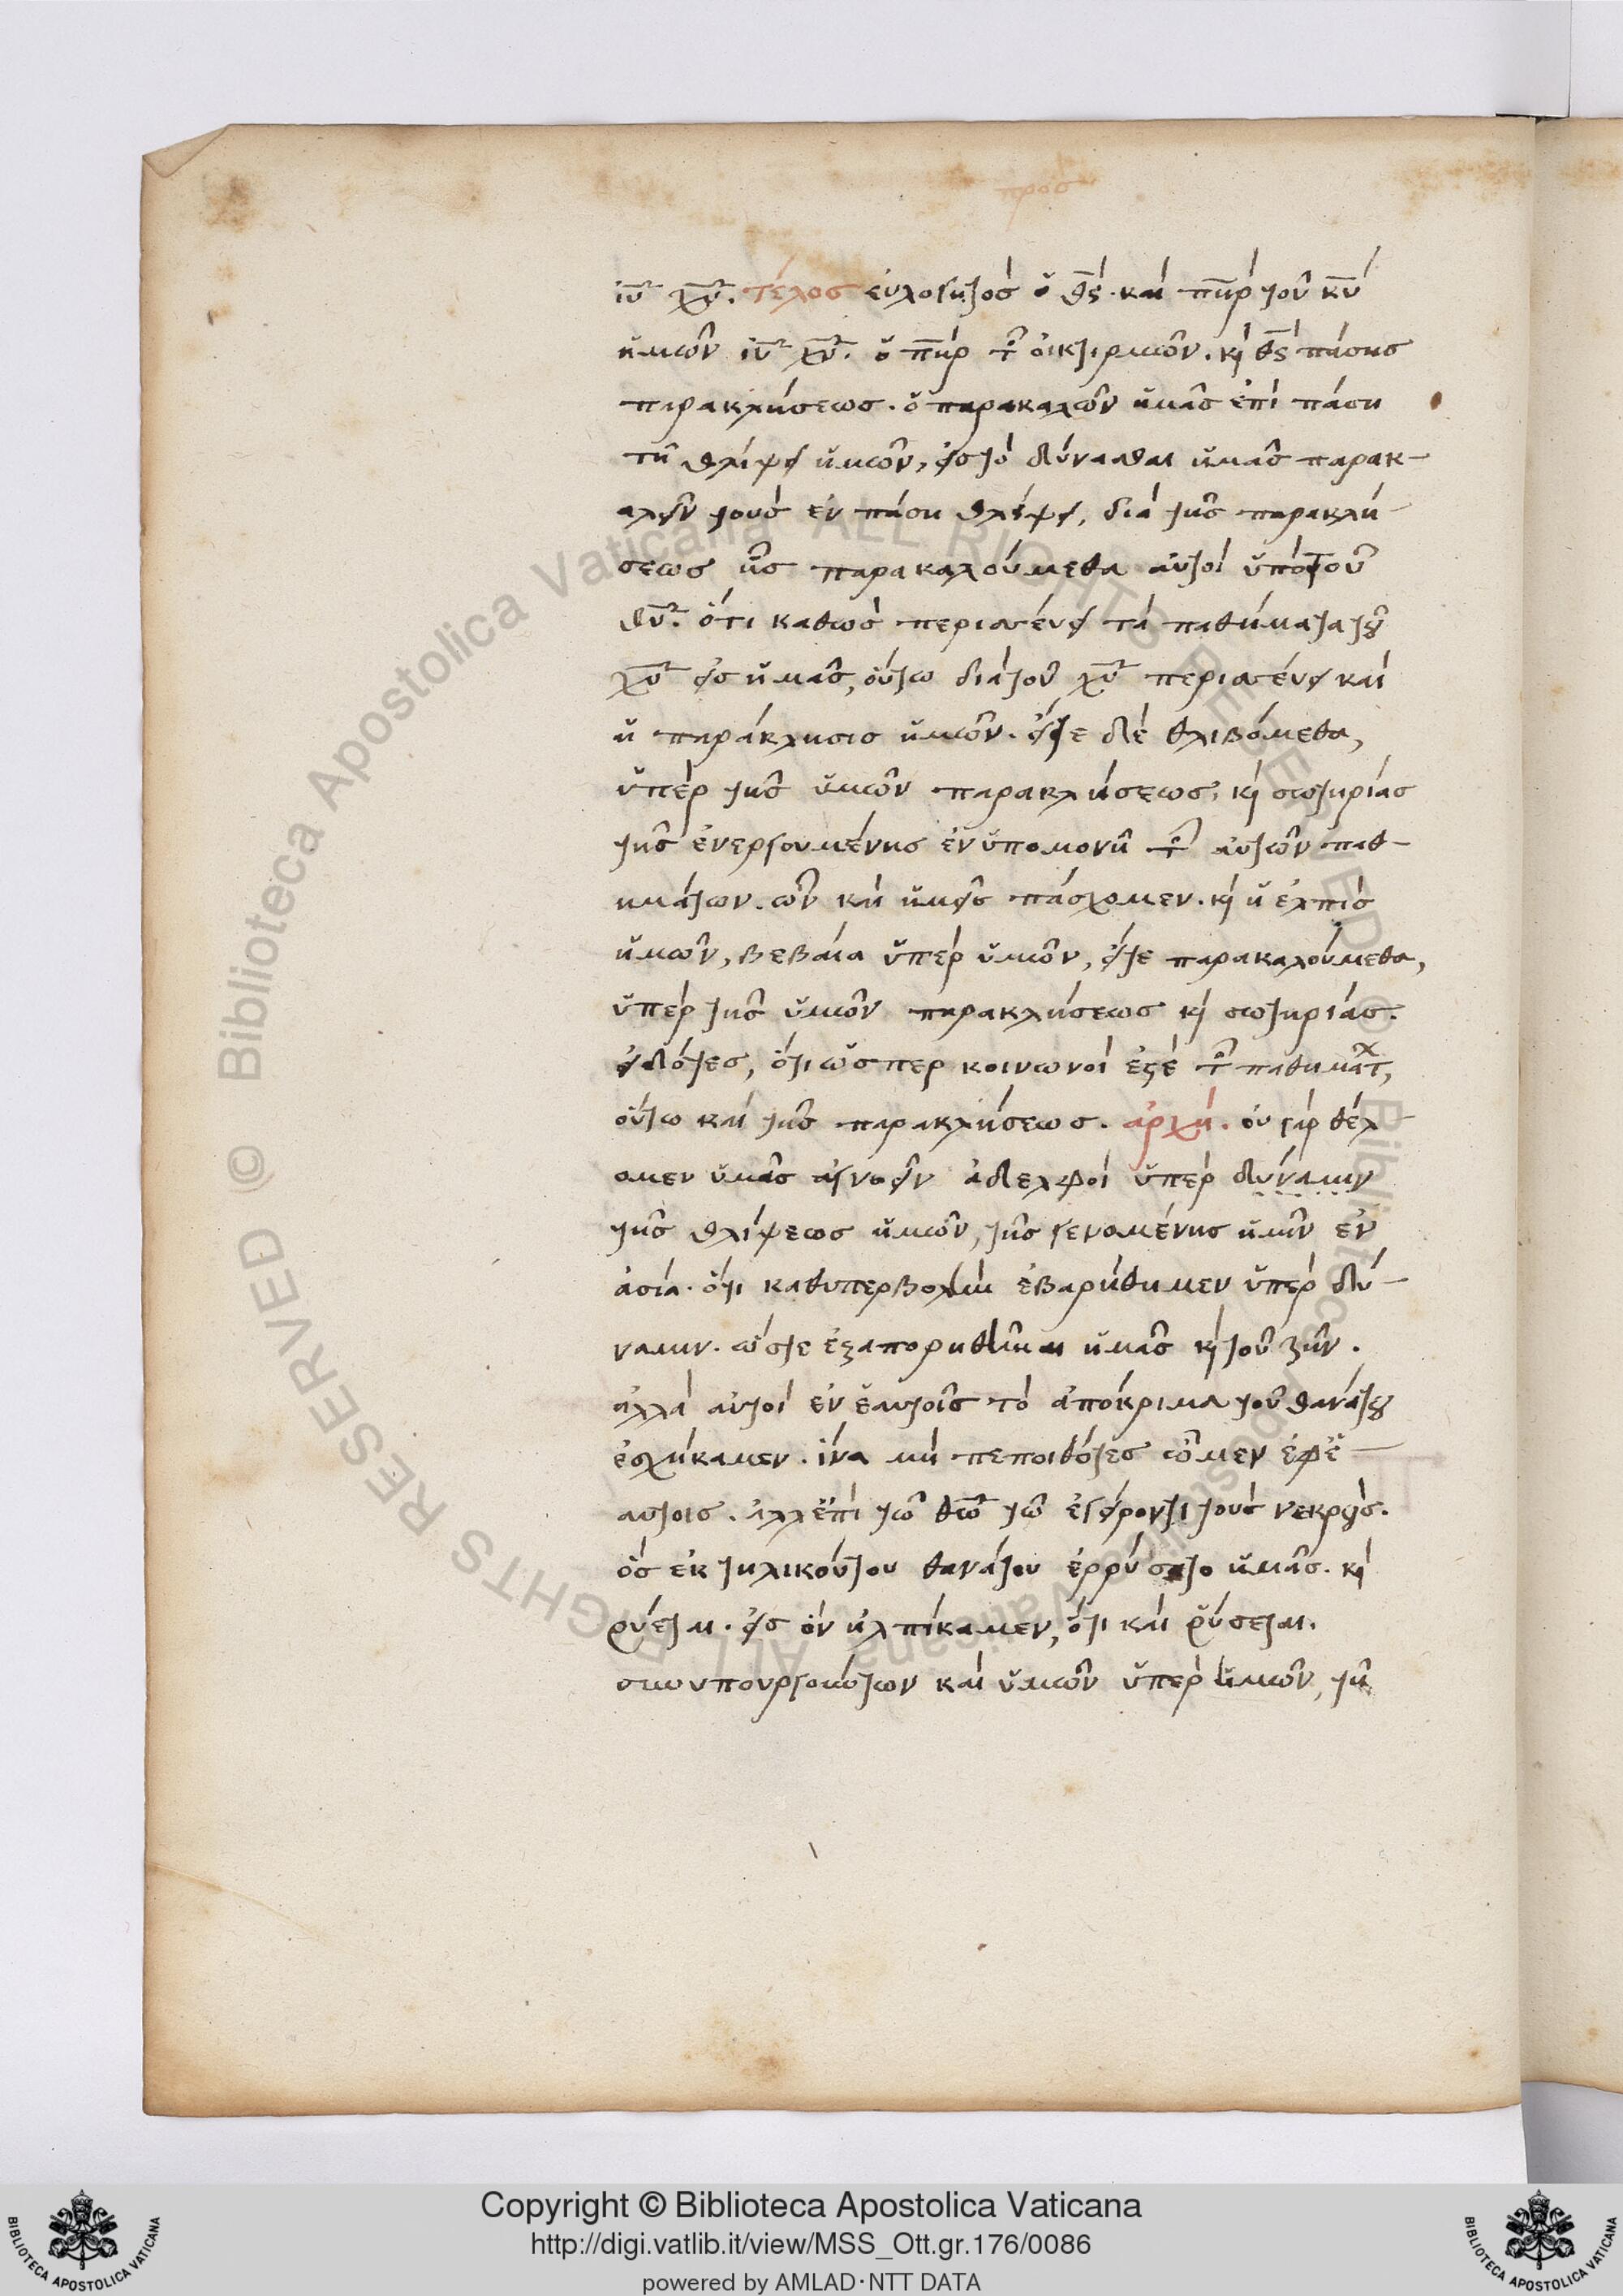 προσ
ιυ̅ χυ̅. τέλοσ εὐλογητὸσ ὁ θς̅ · καὶ πη̅ρ τοῦ κυ̅
ἡμῶν ιυ̅ χυ̅. ὁ πη̅ρ τ̅ οἰκτιρμῶν. κ̀ θς̅ πάσησ
παρακλήσεωσ. ὁ παρακαλῶν ἡμᾶσ ἐπὶ πάση
τῆ θλίψει ἡμῶν, εἰσ τὸ δύνασθαι ἡμᾶσ παρακ-
αλεῖν τοὺσ ἐν πάση θλίψει, διὰ τῆσ παρακλή-
σεωσ ἧσ παρακαλούμεθα αὐτοὶ ὑπὸ τοῦ
θυ̅. ὅτι καθὼσ περισσεύει τὰ παθήματα τȣ͂
χυ̅ εἰσ ἡμᾶσ, οὕτω διὰ τοῦ χυ̅ περισσεύει καὶ
ἡ παράκλησισ ἡμῶν. εἴτε δὲ θλιβόμεθα,
ὑπὲρ τῆσ ὑμῶν παρακλήσεωσ, κ̀ σωτηρίασ
τῆσ ἐνεργουμένησ ἐν ὑπομονῆ τ̅ αὐτῶν παθ-
ημάτων. ὧν καὶ ἡμεῖσ πάσχομεν. κ̀ ἡ ἐλπὶσ
ἡμῶν, βεβαία ὑπὲρ ὑμῶν, εἴτε παρακαλούμεθα,
ὑπὲρ τῆσ ὑμῶν παρακλήσεωσ κ̀ σωτηρίασ.
εἰδότεσ, ὅτι ὥσπερ κοινωνοί ἐστὲ τ̅ παθημάτ,
οὕτω καὶ τῆσ παρακλήσεωσ. ἀρχὴ. οὐ γὰρ θέλ-
ομεν ὑμᾶσ ἀγνοεῖν ἀδελφοὶ ὑπὲρ δύναμιν
τῆσ θλίψεωσ ἡμῶν, τῆσ γενομένησ ἡμῖν ἐν
ἀσία. ὅτι καθυπερβολὴν ἐβαρήθημεν ὑπὲρ δύ-
ναμιν. ὥστε ἐξαπορηθῆναι ἡμᾶσ κ̀ τοῦ ζῆν.
ἀλλὰ αὐτοὶ ἐν ἑαυτοῖσ τὸ ἀπόκριμα τοῦ θανάτȣ
ἐσχήκαμεν. ἵνα μὴ πεποιθότεσ ὦμεν ἐφ ἑ-
αυτοισ. ἀλλ ἐπὶ τῶ θω̅ τῶ ἐγείροντι τοὺσ νεκρȣ́σ.
ὃσ ἐκ τηλικούτου θανάτου ἐρρύσατο ἡμᾶσ. κ̀
ρύεται. εἰσ ὃν ἠλπίκαμεν, ὅτι καὶ ῥύσεται.
συνυπουργούντων καὶ ὑμῶν ὑπὲρ ἡμῶν, τῆ
Copyright © Biblioteca Apostolica Vaticana
http://digi.vatlib.it/view/MSS_Ott.gr.176/0086
powered by AMLAD·NTT DATA